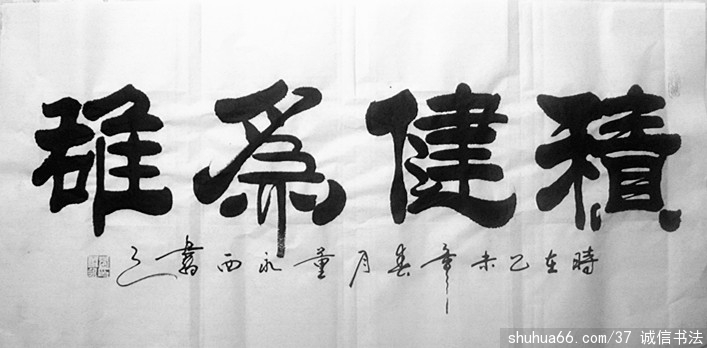 積健為雄
時在乙未年春月董永西書之
shuhua66.com/37 诚信书法